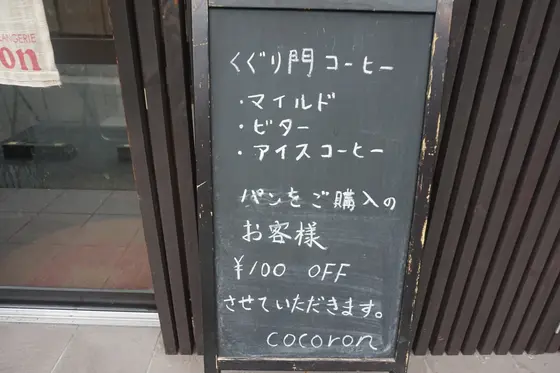 LANGERIE
on
くぐり門コーヒー
・マイルド
・ビター
・アイスコーヒー
パンをご購入の
お客様
¥100 OFF
させていただきます。
cocoron